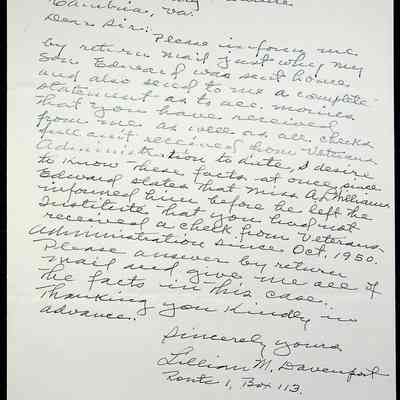 Cambria, Va.
Dear Sir: Please inform me
by return mail just why my
son Edward was sent home
and also send to me a complete
statement as to all monies
that you have received
from me as well as all checks
full am't received from Veterans
Administration to date, I desire
to know these facts at once, since
Edward states that Miss A. A. Williams
informed him before he left the
Institute that you had not
received a check from Veterans
Administration since Oct, 1950.
Please answer by return
mail and give me all of
the facts in this case.
Thanking you kindly in
advance.
Sincerely yours
Lillian M. Davenport
Route 1, Box 113.